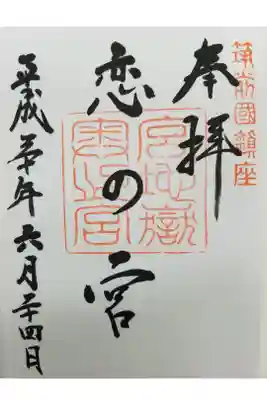 筑前國鎮座
奉拝
宮地嶽
奥之宮
恋の宮
平成三十年六月二十四日